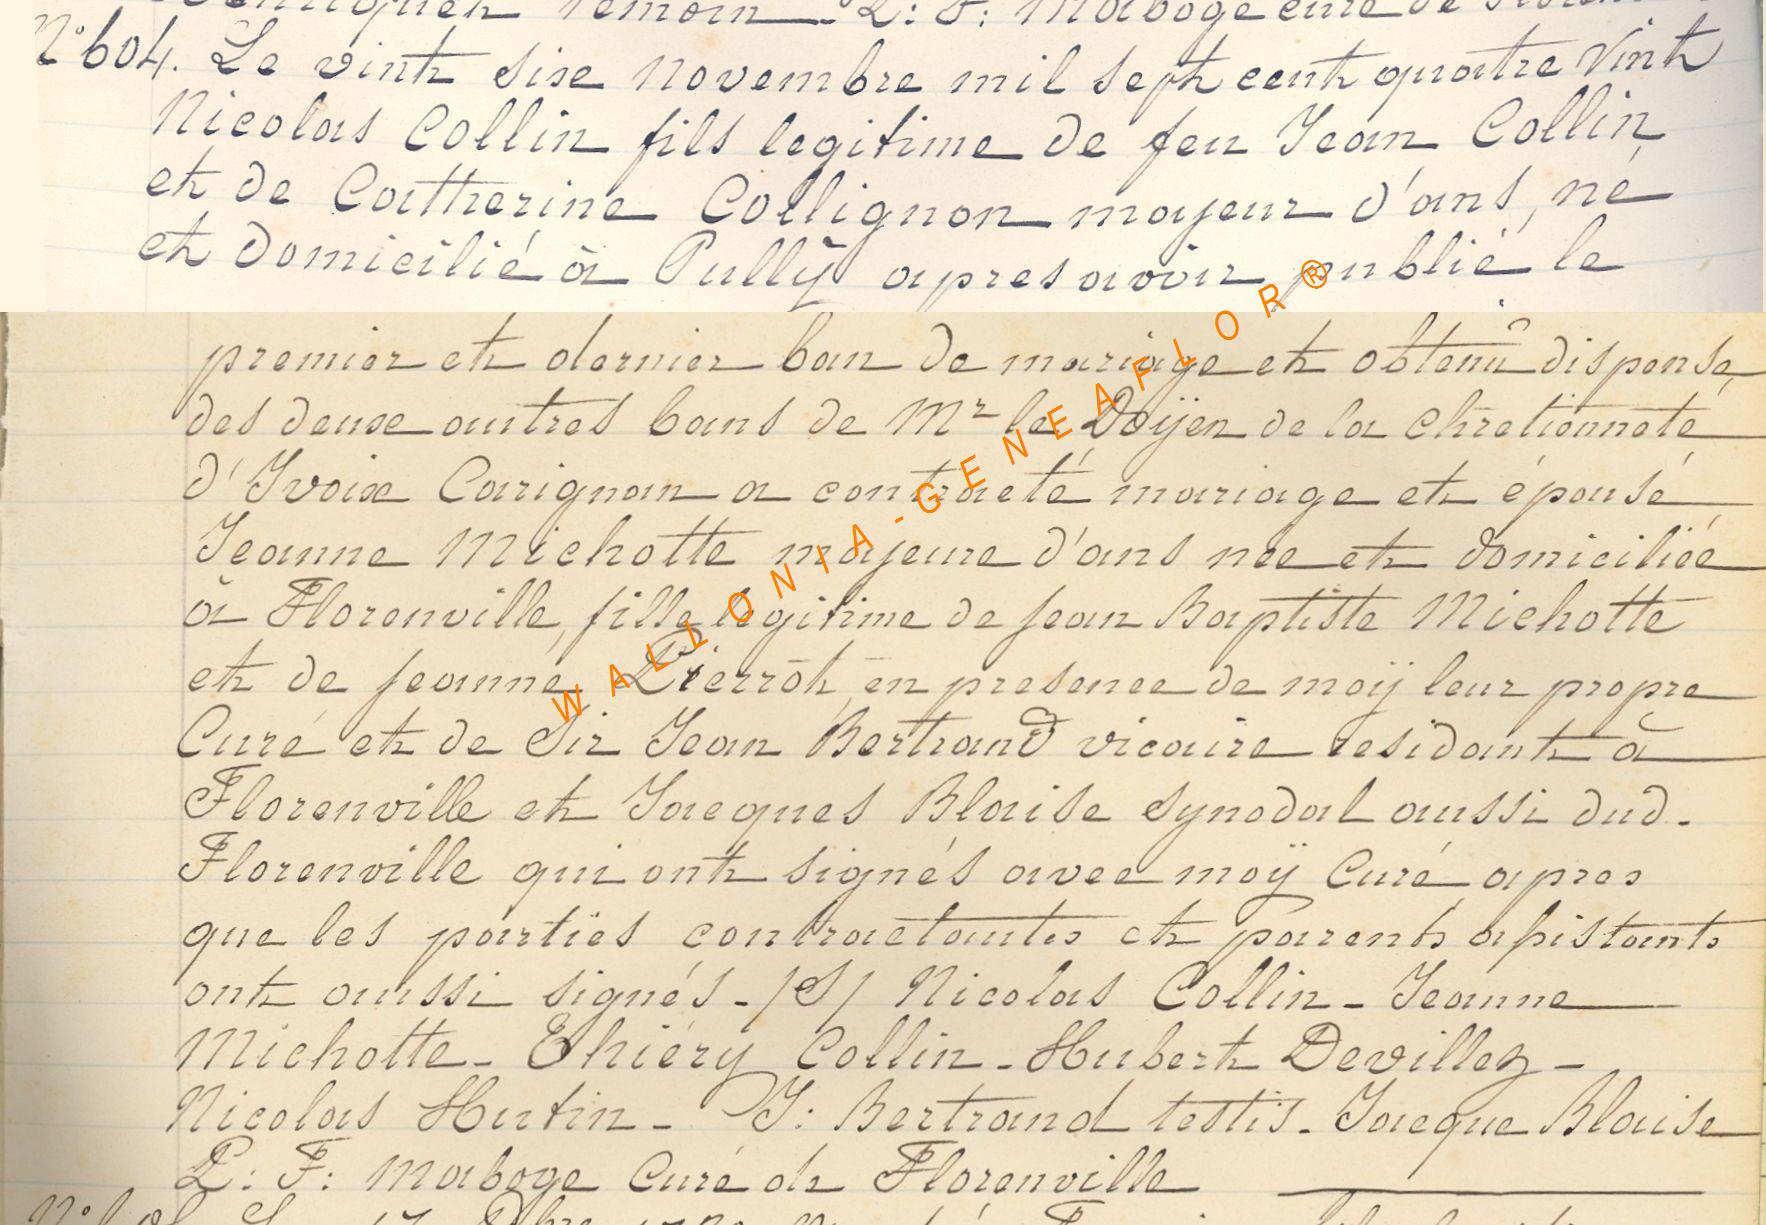 témoin - L: F: Maboge curé de
N° 604. Le vint sixe Novembre mil sept cent quatre Vint
Nicolas Collin fils legitime de feu Jean Collin
et de Catherine Collignon mayeur d'ans, né
et domicilié à Pully apres avoir publié le
premier et dernier ban de mariage et obtenu dispense
des deuxe autres bans de Mr le Doÿen de la chretienneté
d'Ivoix Carignan a contracté mariage et épousé
Jeanne Michotte majeure d'ans née et domiciliée
à Florenville, fille legitime de Jean Baptiste Michotte
et de jeanne Pierrot, en presence de moÿ leur propre
Curé et de Sir Jean Bertrand vicaire residant à
Florenville et Jacques Blaise synodal aussi dud.
Florenville qui ont signés avec moÿ Curé apres
que les partïes contractantes et parents assistants
ont aussi signés - /S/ Nicolas Collin - Jeanne
Michotte - Thiéry Collin - Hubert Devillez -
Nicolas Hutin - J: Bertrand testis - Jacque Blaise
L: F: Maboge Curé de Florenville
WALLONIA-GENEAFLOR®